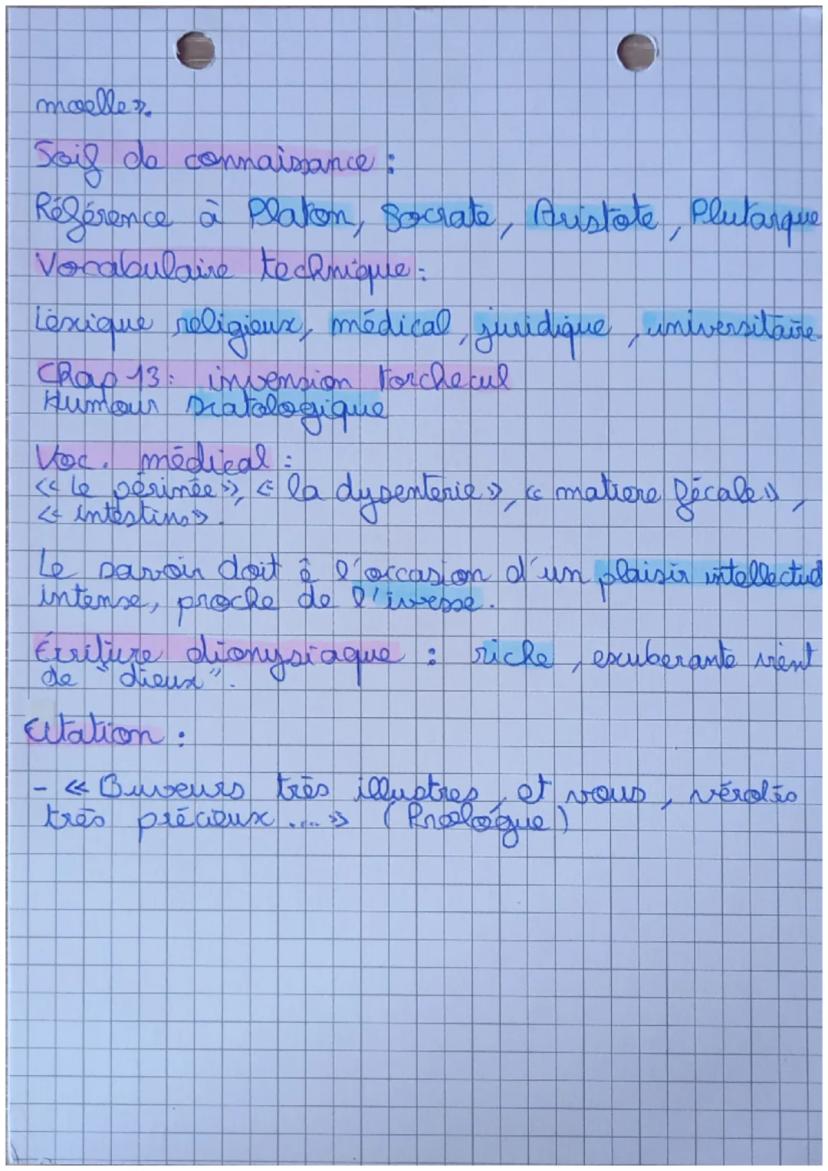 moelle ».
Soif de connaissance :
Référence à Platon, Socrate, Aristote, Plutarque
Vocabulaire technique :
Lexique religieux, médical, juridique, universitaire
Chap 13 : invension torchecul
Humour scatologique
Voc. médical :
« Le périnée », « la dysenterie », « matiere fécale »,
« intestins ».
Le savoir doit ê l'occasion d'un plaisir intellectuel
intense, proche de l'ivresse.
Écriture dionysiaque : riche, exuberante vient
de "dieux".
Citation :
- « Buveurs très illustres, et vous, vérolés
très précieux .... » (Proologue)